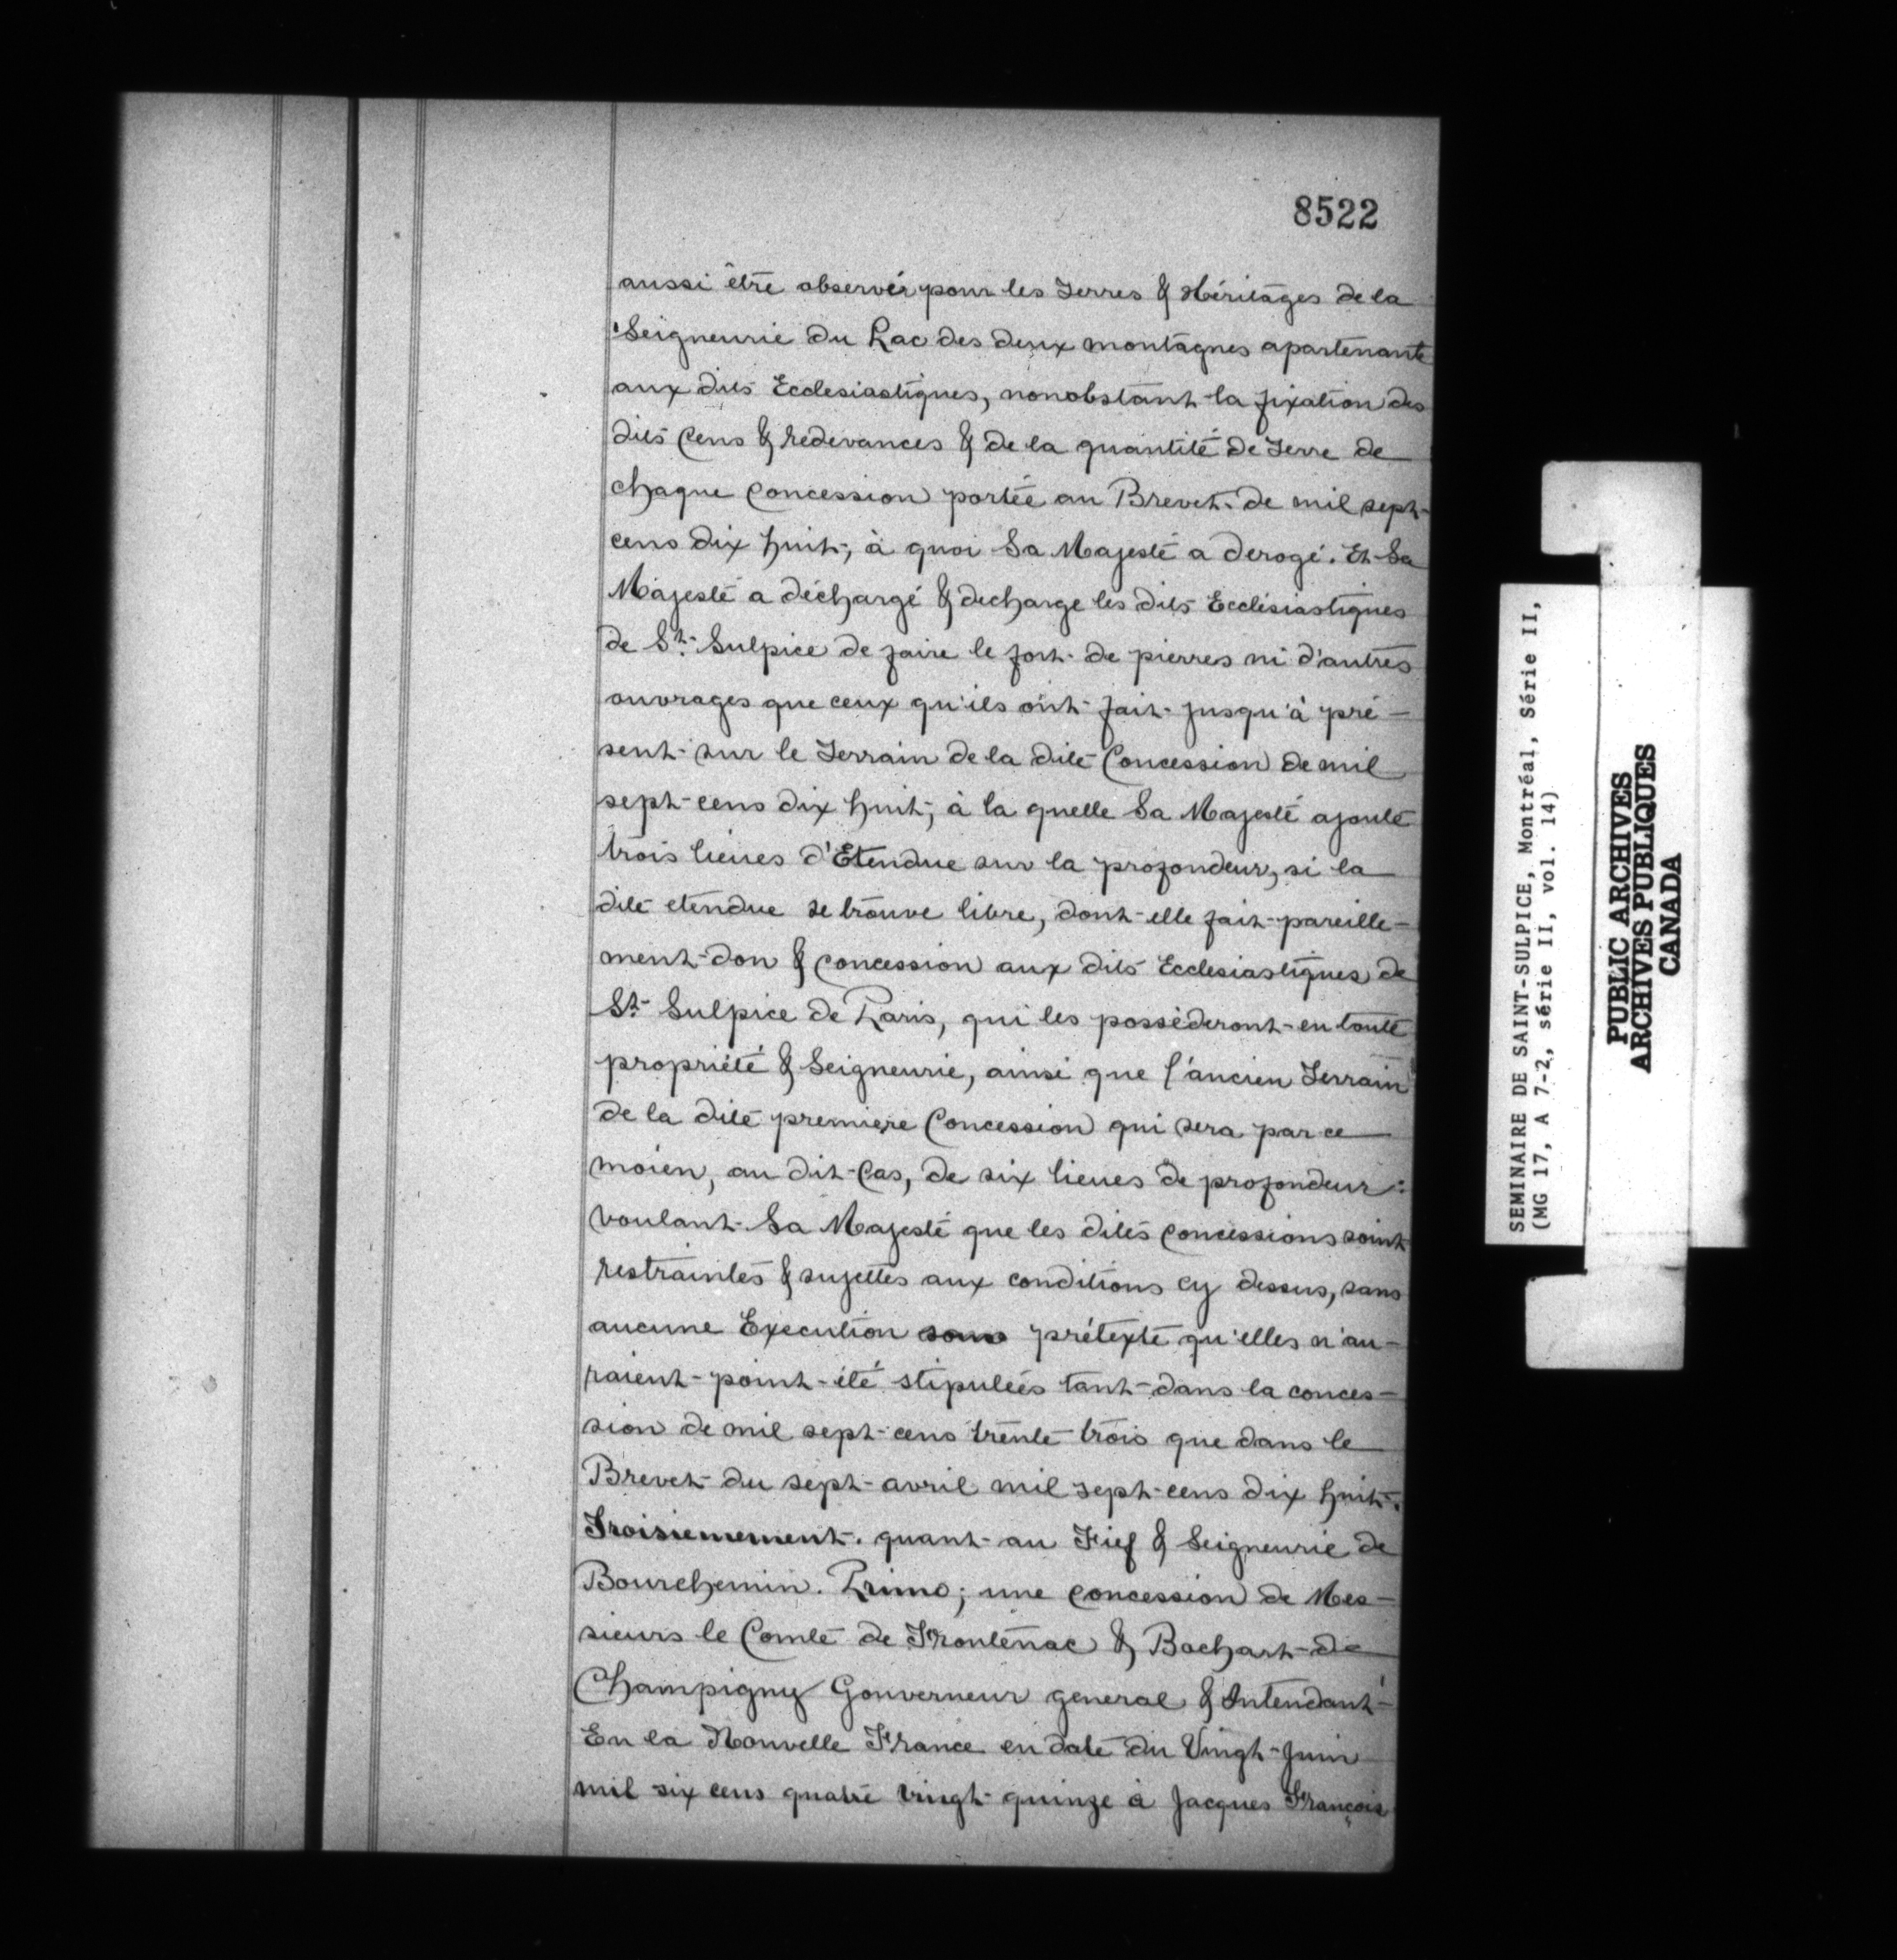 8522
aussi être observér pour les Terres & Héritages de la
Seigneurie du Lac des deux montagnes apartenante
aux dits Ecclesiastiques, nonobstant la fixation des
dits Cens & redevances & de la quantité de Terre de
chaque Concession portée au Brevet de mil sept
cens dix huit, à quoi Sa Majesté a derogé. Et Sa
Majesté a déchargé & decharge les dits Ecclésiastiques
de St. Sulpice de faire le fort de pierres ni d'autres
ouvrages que ceux qu'ils ont fait jusqu'à pré-
sent sur le Terrain de la dite Concession de mil
sept cens dix huit, à la quelle Sa Majesté ajoute
trois lieues d'Etendue sur la profondeur, si la
dite etendue se trouve libre, dont elle fait pareille-
ment don & concession aux dits Ecclesiastiques de
St Sulpice de Paris, qui les posséderont en toute
propriété & Seigneurie, ainsi que l'ancien Terrain
de la dite première Concession qui sera par ce
moien, au dit Cas, de six lieues de profondeur:
voulant Sa Majesté que les dites concessions soint
restraintes & sujettes aux conditions cy dessus, sans
aucune Execution sous prétexte qu'elles n'au-
raient point été stipulées tant dans la conces-
sion de mil sept cens trente trois que dans le
Brevet du sept avril mil sept cens dix huit.
Troisiemement. quant au Fief & Seigneurie de
Bourchemin. Primo; une concession de Mes-
sieurs le Comte de Frontenac & Bochart de
Champigny Gouverneur general & Intendant
En la Nouvelle France en date du Vingt Juin
mil six cens quatre vingt quinze à Jacques François
SEMINAIRE DE SAINT-SULPICE, Montréal, Série II,
(MG 17, A 7-2, série II, vol. 14)
PUBLIC ARCHIVES
ARCHIVES PUBLIQUES
CANADA